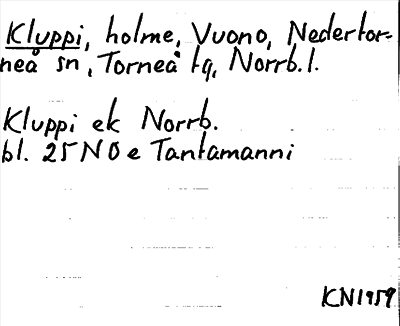 Kluppi, holme, Vuono, Nedertor-
neå sn, Torneå tg, Norrb.l.
Kluppi ek Norrb.
bl. 25 NO e Tantamanni
KN1959